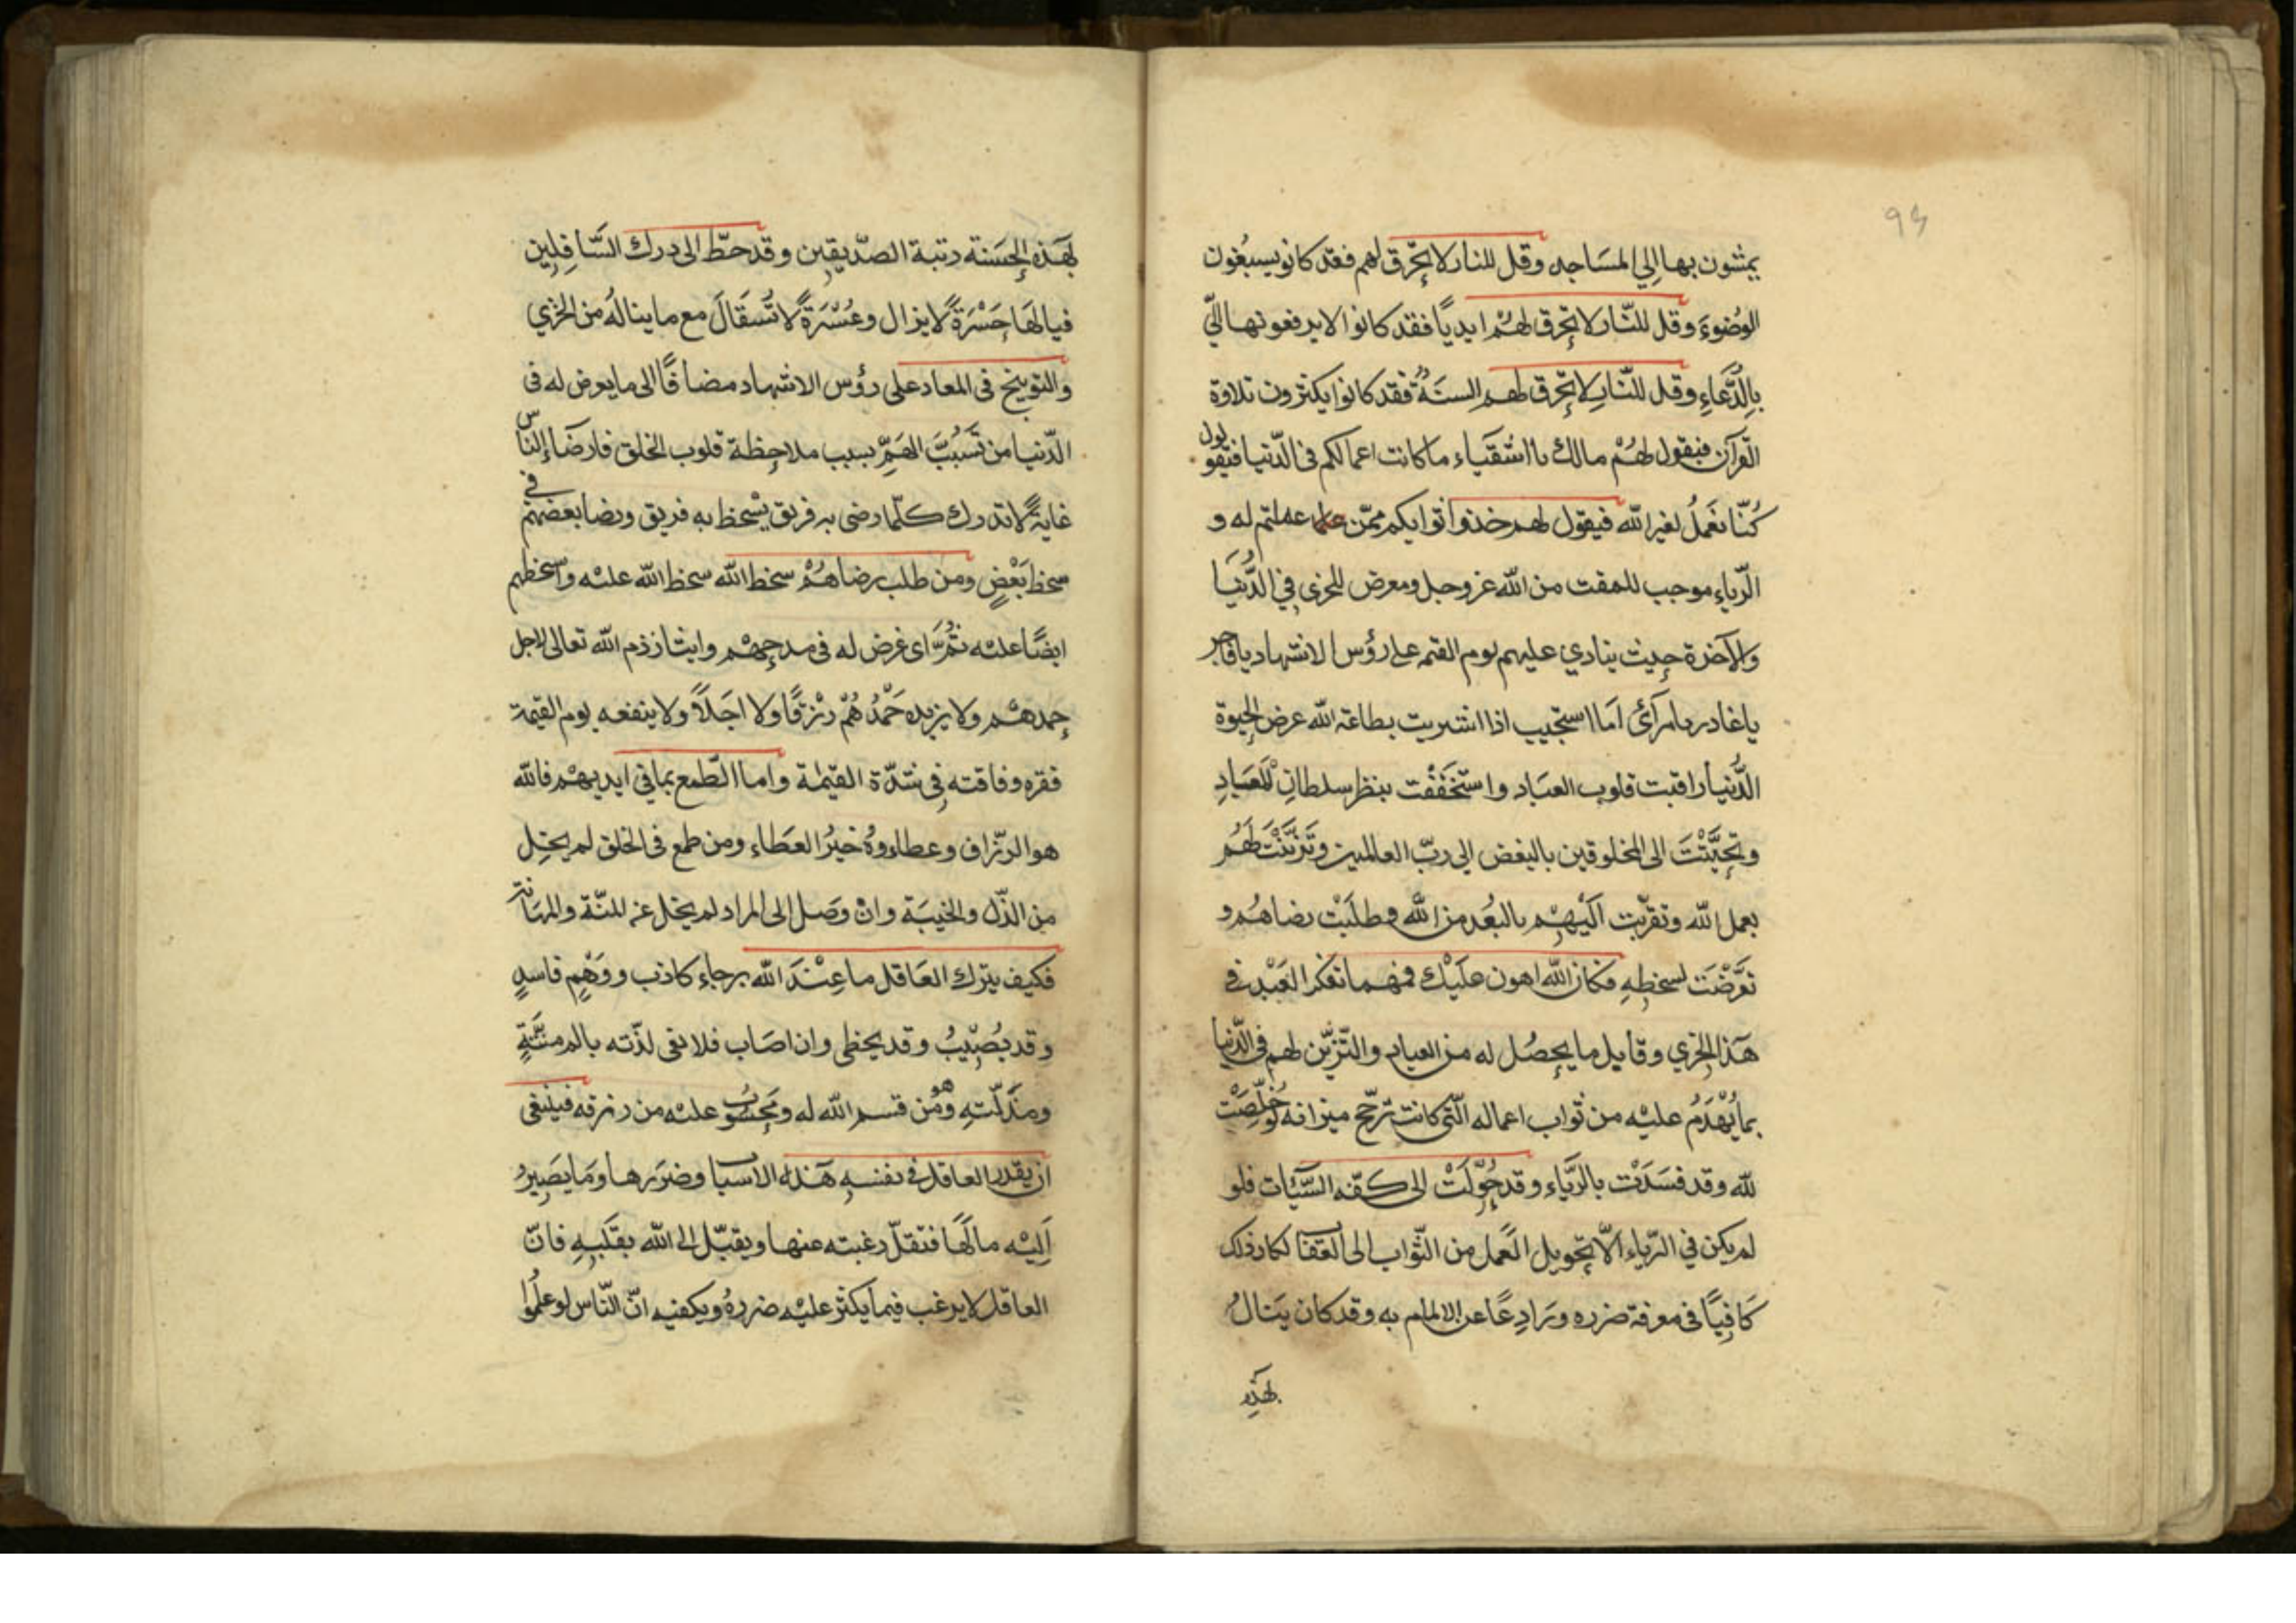 94
يمشون بها الي المساجد وقل للنار لا تحرق لهم فقد كانو يسبغون
الوضوء وقل للنّار لا تحرق لهُمْ ايديًا فقد كانوا لا يرفعونها اليّ
بالدّعاءِ وقل للنّارِ لا تحرق لهم السنَةً فقد كانوا يكثرون تلاوة
القرآن فيقول لهُمْ مالك يا اشقياء ما كانت اعمالكم في الدّنيا فيقولون
كُنّا نعملُ لغير الله فيقول لهم خذوا ثوابكم ممّن عملتم له و
الرّياءِ موجب للمقت من الله عز وجل ومعرض للخزى في الدُّنيَا
والآخرة حيث ينادي عليهم يوم القيمه على رؤس الاشهاد يا فاجر
يا غادر يا مرآئى اما استحييب اذا اشتريت بطاعة الله عرض الحيوة
الدُّنيا راقبت قلوب العبَاد واستخَفَفْت بنظر سلطانِ المعبادِ
وتحبَّبْتَ الى المخلوقين بالبغض الي ربّ العالمين وتَزَيَّنْتَ لَهُم
بعمل الله وتقرّبت الَيْهِمْ بالبُعد من الله وطلَبْت رضاهُم و
تعرَّضْتَ لسخطِهِ فكان الله اهون علَيْك فمهما تفكر العَبْد في
هَذا الخزي وقابل ما يحصُل له من العباد والتّزيّن لهم في الدّنيا
بما يُهْدَمُ عليْه من ثواب اعماله الّتى كانت ترجّح ميزانه لو خُلّصَتْ
للّه وقد فسَدَتْ بالرّياء وقد حُوِّلَتْ الى كفّه السّيّئات فلو
لم يكن في الرّياء الّا تحويل العَمل من الثّواب الى العقاب لكان ذلك
كَافِيًا في معرفة ضرره ورَادِعًا عن الالمام به وقد كان يَنالُ
بهذِهِ
بهَذه الحسَنة رتبة الصّديقين وقد حطّ الى درك السّافلين
فيا لهَا حَسْرَةً لا يزال وعُسْرَةً لا تُستقَالَ مع ما ينالُه من الخزي
والتوبيخ في المعاد على رؤس الاشهاد مضافًا الى ما يعرض له في
الدّنيا من تَسَبُّبَ الهَمِّ بسبب ملاحظة قلوب الخلق فا رضا النّاس
غاية لا تدرك كلّما رضى به فريق يسْخط به فريق ورضا بعضهم في
سخط بَعْضٍ ومن طلب رضاهُمْ سخط الله سخط الله عليْه واسخطهم
ايضًا عليْه ثُمَّ اى غرض له في مدحِهْم وايثار ذم الله تعالى لاجل
حمدهْم ولا يزيده حَمْدُهُمْ رزْقًا ولا اجَلًا ولا ينفعه يوم القيمة
فقره وفاقته في شدّة القيٰمة واما الطّمع بما في ايديهْم فالله
هو الرزّاق وعطاوهُ خيرُ العَطاء ومن طمع في الخلق لم يخل
من الذّل والخيبَة وانْ وصَل الى المراد لم يخل عن المنّة والمهَانة
فكيف يترك العَاقل ما عِنْدَ الله برجاءٍ كاذب ووَهْمٍ فاسدٍ
وقد يُصْيبُ وقد يخطى وان اصَاب فلا تفى لذّته بالم منّتِهِ
ومذَلّتِهِ وهو من قسم الله له ومحسوب عليْه من رزقه فينبغى
ان يقدر العاقل في نفسِهِ هَذه الاسباب وضرَرها ومَا يصَيرُ
اِلَيْه مالُهَا فتقلّ رغبته عنها ويقبّل الى الله بقلْبِهِ فانّ
العاقل لا يرغب فيما يكثر عليْه ضررهُ ويكفيه انّ النّاس لو علمُوا